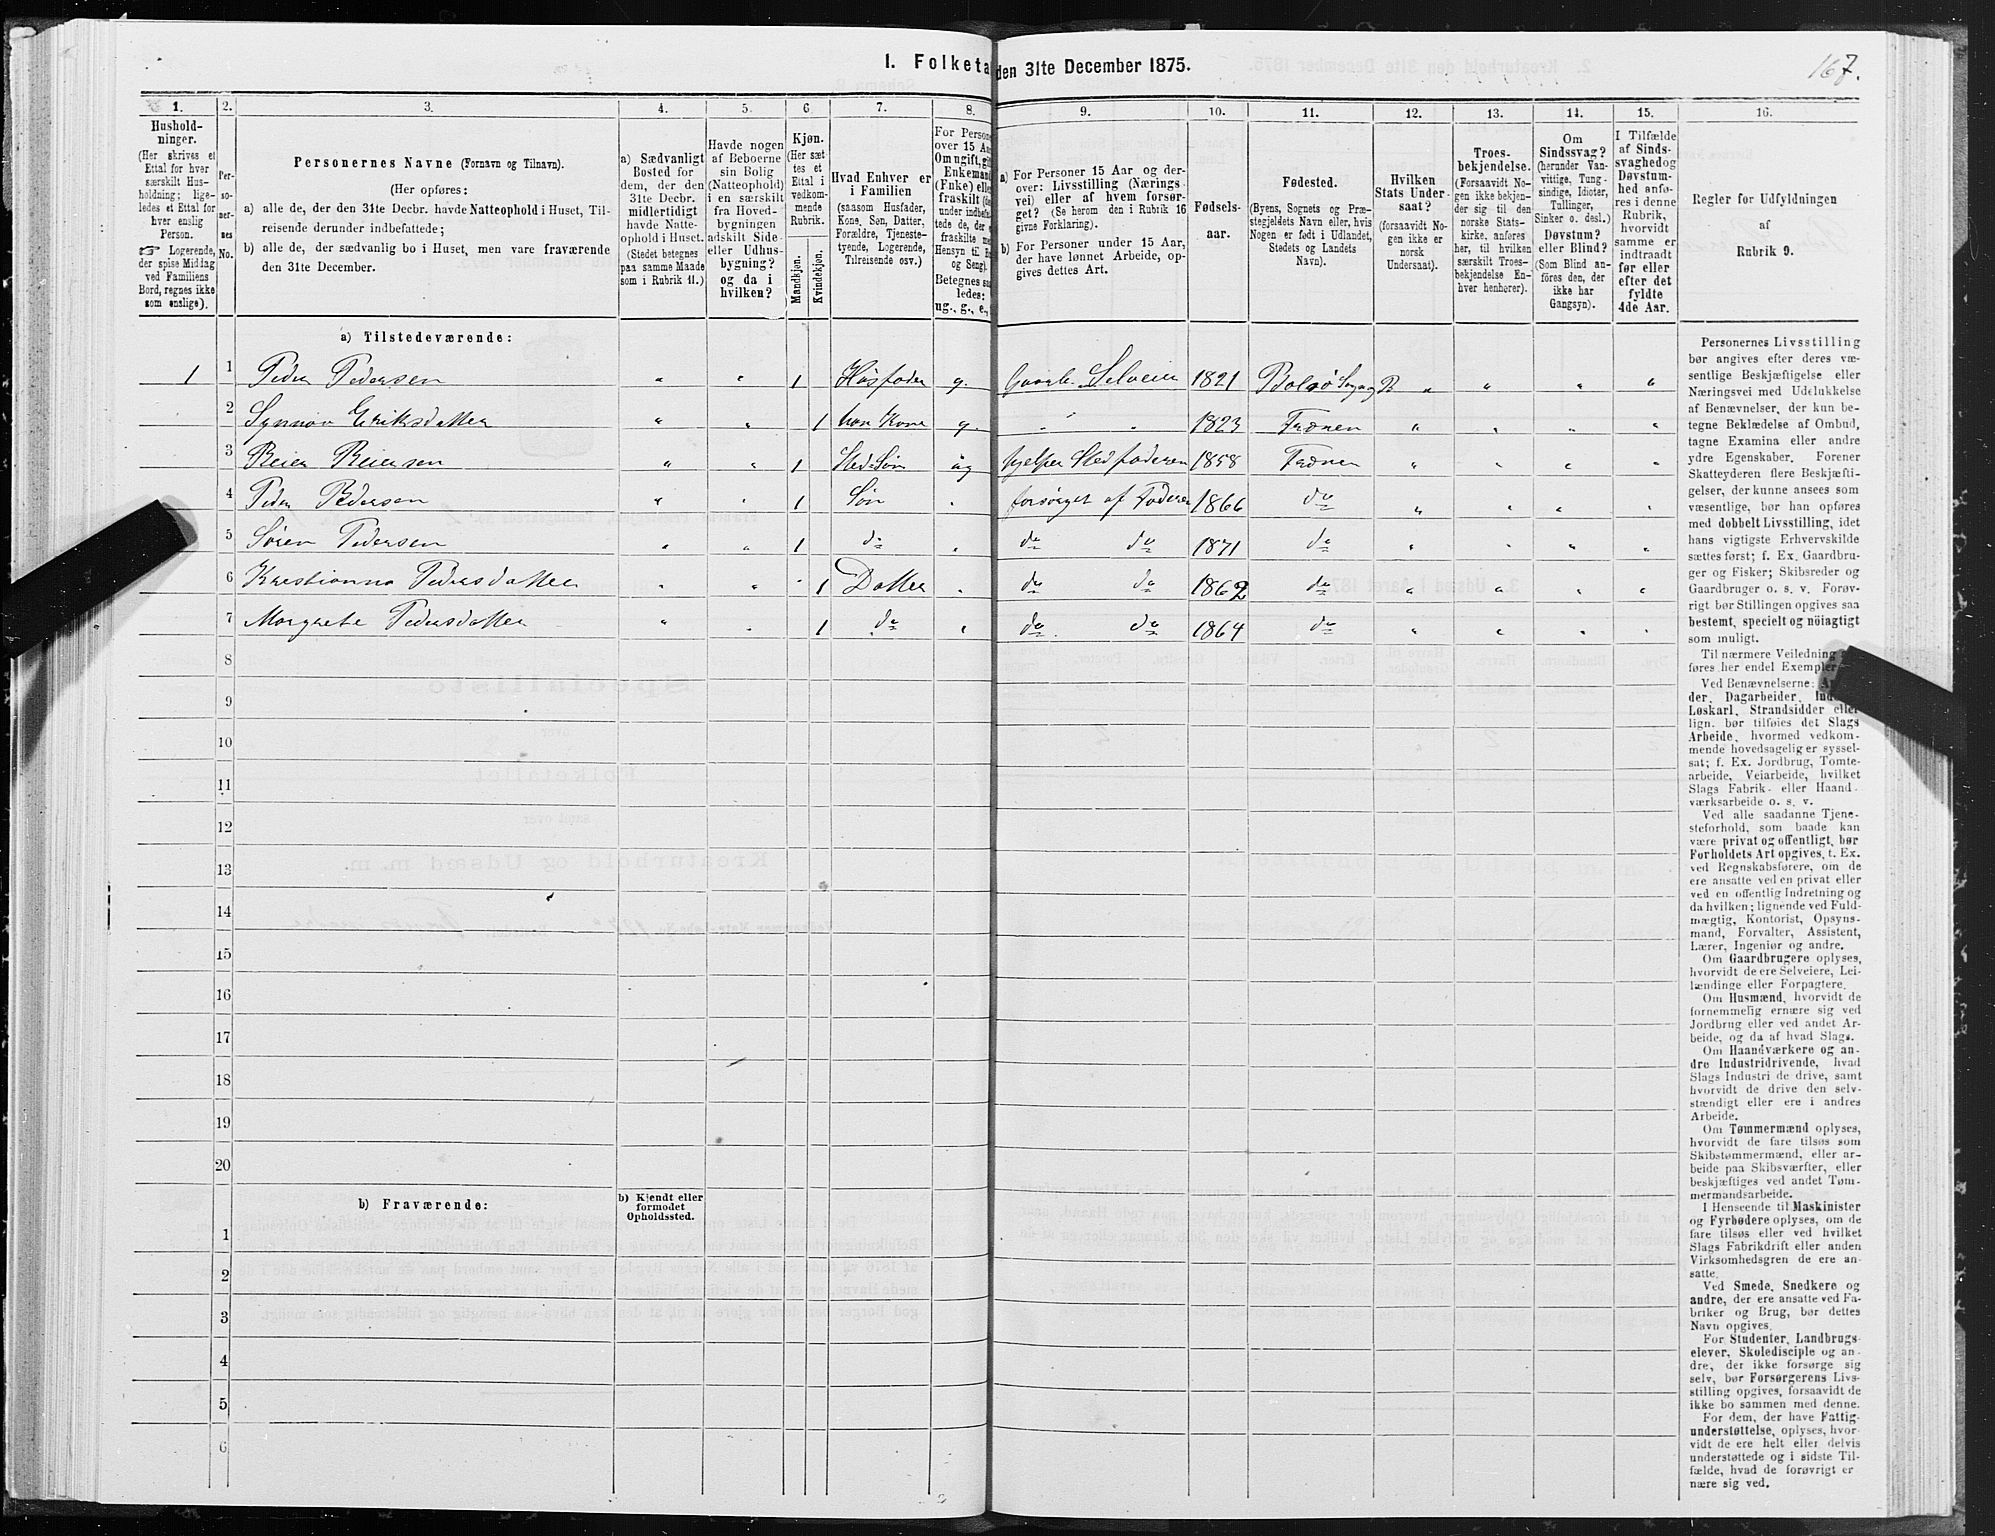 1. Folketa den 31te December 1875.
167.
1. 2. 3. 4. 5. 6 7. 8. 9. 10. 11. 12. 13. 14. 15. 16.
Hushold-
ninger.
(Her skrives et
Ettal for hver
særskilt Hus-
holdning; lige-
ledes et Ettal for
hver enslig
Person.
☞ Logerende,
der spise Middag
ved Familiens
Bord, regnes ikke
som enslige).
Per-
so-
ner-
nes
No.
Personernes Navne (Fornavn og Tilnavn).
(Her opføres:
a) alle de, der den 31te Decbr. havde Natteophold i Huset, Til-
reisende derunder indbefattede;
b) alle de, der sædvanlig bo i Huset, men vare fraværende
den 31te December.
a) Sædvanligt
Bosted for
dem, der den
31te Decbr.
midlertidigt
havde Natte-
ophold i Huset.
(Stedet betegnes
paa samme Maade
som i Rubrik 11.)
Havde nogen
af Beboerne
sin Bolig
(Natteophold)
i en særskilt
fra Hoved-
bygningen
adskilt Side-
eller Udhus-
bygning?
og da i
hvilken?
Kjøn.
(Her sæt
tes et
Ettal i
vedkom-
mende
Rubrik.
Mandkjøn.
Kvindekjøn.
Hvad Enhver er
i Familien
(saasom Husfader,
Kone, Søn, Datter,
Forældre, Tjeneste-
tyende, Logerende,
Tilreisende osv.)
For Persone
over 15 Aa
Om ugift, gif
Enkemand
(Enke) elle
fraskilt
under indbefat-
tede de, der
fraskilte
Hensyn til Bo
og Seng).
Betegnes saa
ledes:
ug., g., e.,
a) For Personer 15 Aar og der-
over: Livsstilling (Nærings
vei) eller af hvem forsør-
get? (Se herom den i Rubrik 16
givne Forklaring).
b) For Personer under 15 Aar,
der have lønnet Arbeide, op-
gives dettes Art.
Fødsels-
aar.
Fødested.
(Byens, Sognets og Præ-
stegjeldets Navn eller, hvis
Nogen er født i Udlandet,
Stedets og Landets
Navn).
Hvilken
Stats Under-
saat?
(forsaavidt No-
gen ikke er
norsk
Undersaat).
Troes-
bekjendelse.
(Forsaavidt No-
gen ikke bekjen-
der sig til den
norske Stats-
kirke, anføres
her, til hvilken
særskilt Troes-
bekjendelse En-
hver henhører).
Om
Sindssvag?
(herunder Van-
vittige, Tung-
sindige, Idioter,
Tullinger,
Sinker o. desl.)
Døvstum?
eller Blind?
(Som Blind an-
föres den, der
ikke har
Gangsyn).
I Tilfælde
af Sinds-
svaghed og
Døvstum-
hed anfø-
res i denne
Rubrik,
hvorvidt
samme er
indtraadt
før eller
efter det
fyldte
4de Aar.
Regler for Udfyldningen
af
Rubrik 9.
a) Tilstedeværende:
1 1 Peder Pedersen " " 1 Husfader g. Gaardb. Selveier 1821 Bolsø Sogn " " " "
2 Synnøv Eriksdatter " " 1 hans Kone g. " " 1823 Frænen " " " "
3 Beier Beiersen " " 1 Sted-Søn ug hjelper Stedfaderen 1858 Frænen " " " "
4 Peder Pedersen " " 1 Søn " forsørget af Faderen 1866 do " " " "
5 Søren Pedersen " " 1 do " do do 1871 do " " " "
6 Krestianna Pedersdatter " " " 1 Datter " do do 1862 do " " " "
7 Margrete Pedersdatter " " 1 do " do do 1864 do " " " "
8
9
10
11
12
13
14
15
16
17
18
19
20
b) Fraværende:
b) Kjendt eller
formodet
Opholdssted.
1
2
3
4
5
6
Personernes Livsstilling
bør angives efter deres væ-
sentlige Beskjæftigelse eller
Næringsvei med Udelukkelse
af Benævnelser, der kun be-
tegne Beklædelse af Ombud,
tagne Examina eller andre
ydre Egenskaber. Forener
Skatteyderen flere Beskjæfti-
gelser, der kunne ansees som
væsentlige, bør han opføres
med dobbelt Livsstilling, idet
hans vigtigste Erhvervskilde
sættes først; f. Ex. Gaardbru-
ger og Fisker; Skibsreder og
Gaardbruger o. s. v. Forøv-
rigt bør Stillingen opgives saa
bestemt, specielt og nöiagtigt
som muligt.
Til nærmere Veiledning
føres her endel Exempler
Ved Benævnelserne:
der, Dagarbeider,
Løskarl, Strandsidder eller
lign. bør tilføies det Slags
Arbeide, hvormed vedkom-
mende hovedsagelig er syssel-
sat; f. Ex. Jordbrug, Tomte-
arbeide, Veiarbeide, hvilket
Slags Fabrik- eller Haand-
værksarbeide o. s. v.
Ved alle saadanne Tjene-
steforhold, som baade kan
være privat og offentligt, bør
Forholdets Art opgives, f. Ex.
ved Regnskabsførere, om de
ere ansatte ved en privat eller
ved en offentlig Indretning og
da hvilken; lignende ved Fuld-
mægtig, Kontorist, Opsyns-
mand, Forvalter, Assistent,
Lærer, Ingeniør og andre.
Om Gaardbrugere oplyses,
hvorvidt de ere Selveiere, Lei-
lændinge eller Forpagtere.
Om Husmænd, hvorvidt de
fornemmelig ernære sig ved
Jordbrug eller ved andet Ar-
beide, og da af hvad Slags.
Om Haandværkere og an-
dre Industridrivende, hvad
Slags Industri de drive, samt
hvorvidt de drive den selv-
stændigt eller ere i andres
Arbeide.
Om Tømmermænd oplyses,
hvorvidt de fare tilsøs som
Skibstømmermænd, eller ar-
beide paa Skibsværfter, eller
beskjæftiges ved andet Tøm-
mermandsarbeide.
I Henseende til Maskinister
og Fyrbødere oplyses, om de
fare tilsøs eller ved hvilket
Slags Fabrikdrift eller anden
Virksomhedsgren de ere an-
satte.
Ved Smede, Snedkere og
andre, der ere ansatte ved Fa-
briker og Brug, bør dettes
Navn opgives.
For Studenter, Landbrugs-
elever, Skoledisciple og an-
dre, der ikke forsørge sig
selv, bør Forsørgerens Livs-
stilling opgives, forsaavidt de
ikke bo sammen med denne.
For dem, der have Fattig-
understøttelse, oplyses, hvor-
vidt de ere helt eller delvis
understøttede og i sidste Til-
fælde, hvad de forøvrigt er
nære sig ved.